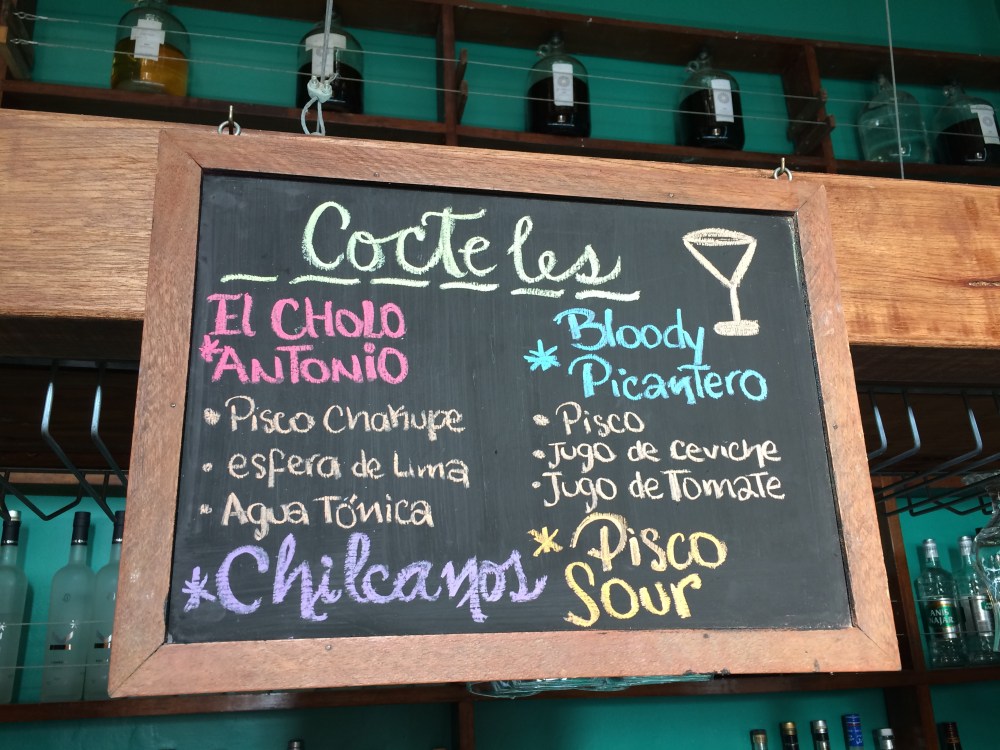 Cocteles
El CHOLO
*ANTONIO
• Pisco Chañupe
• esfera de Lima
• Agua Tónica
*Chilcanos
Bloody
* Picantero
• Pisco
• Jugo de ceviche
• Jugo de Tomate
* Pisco
Sour